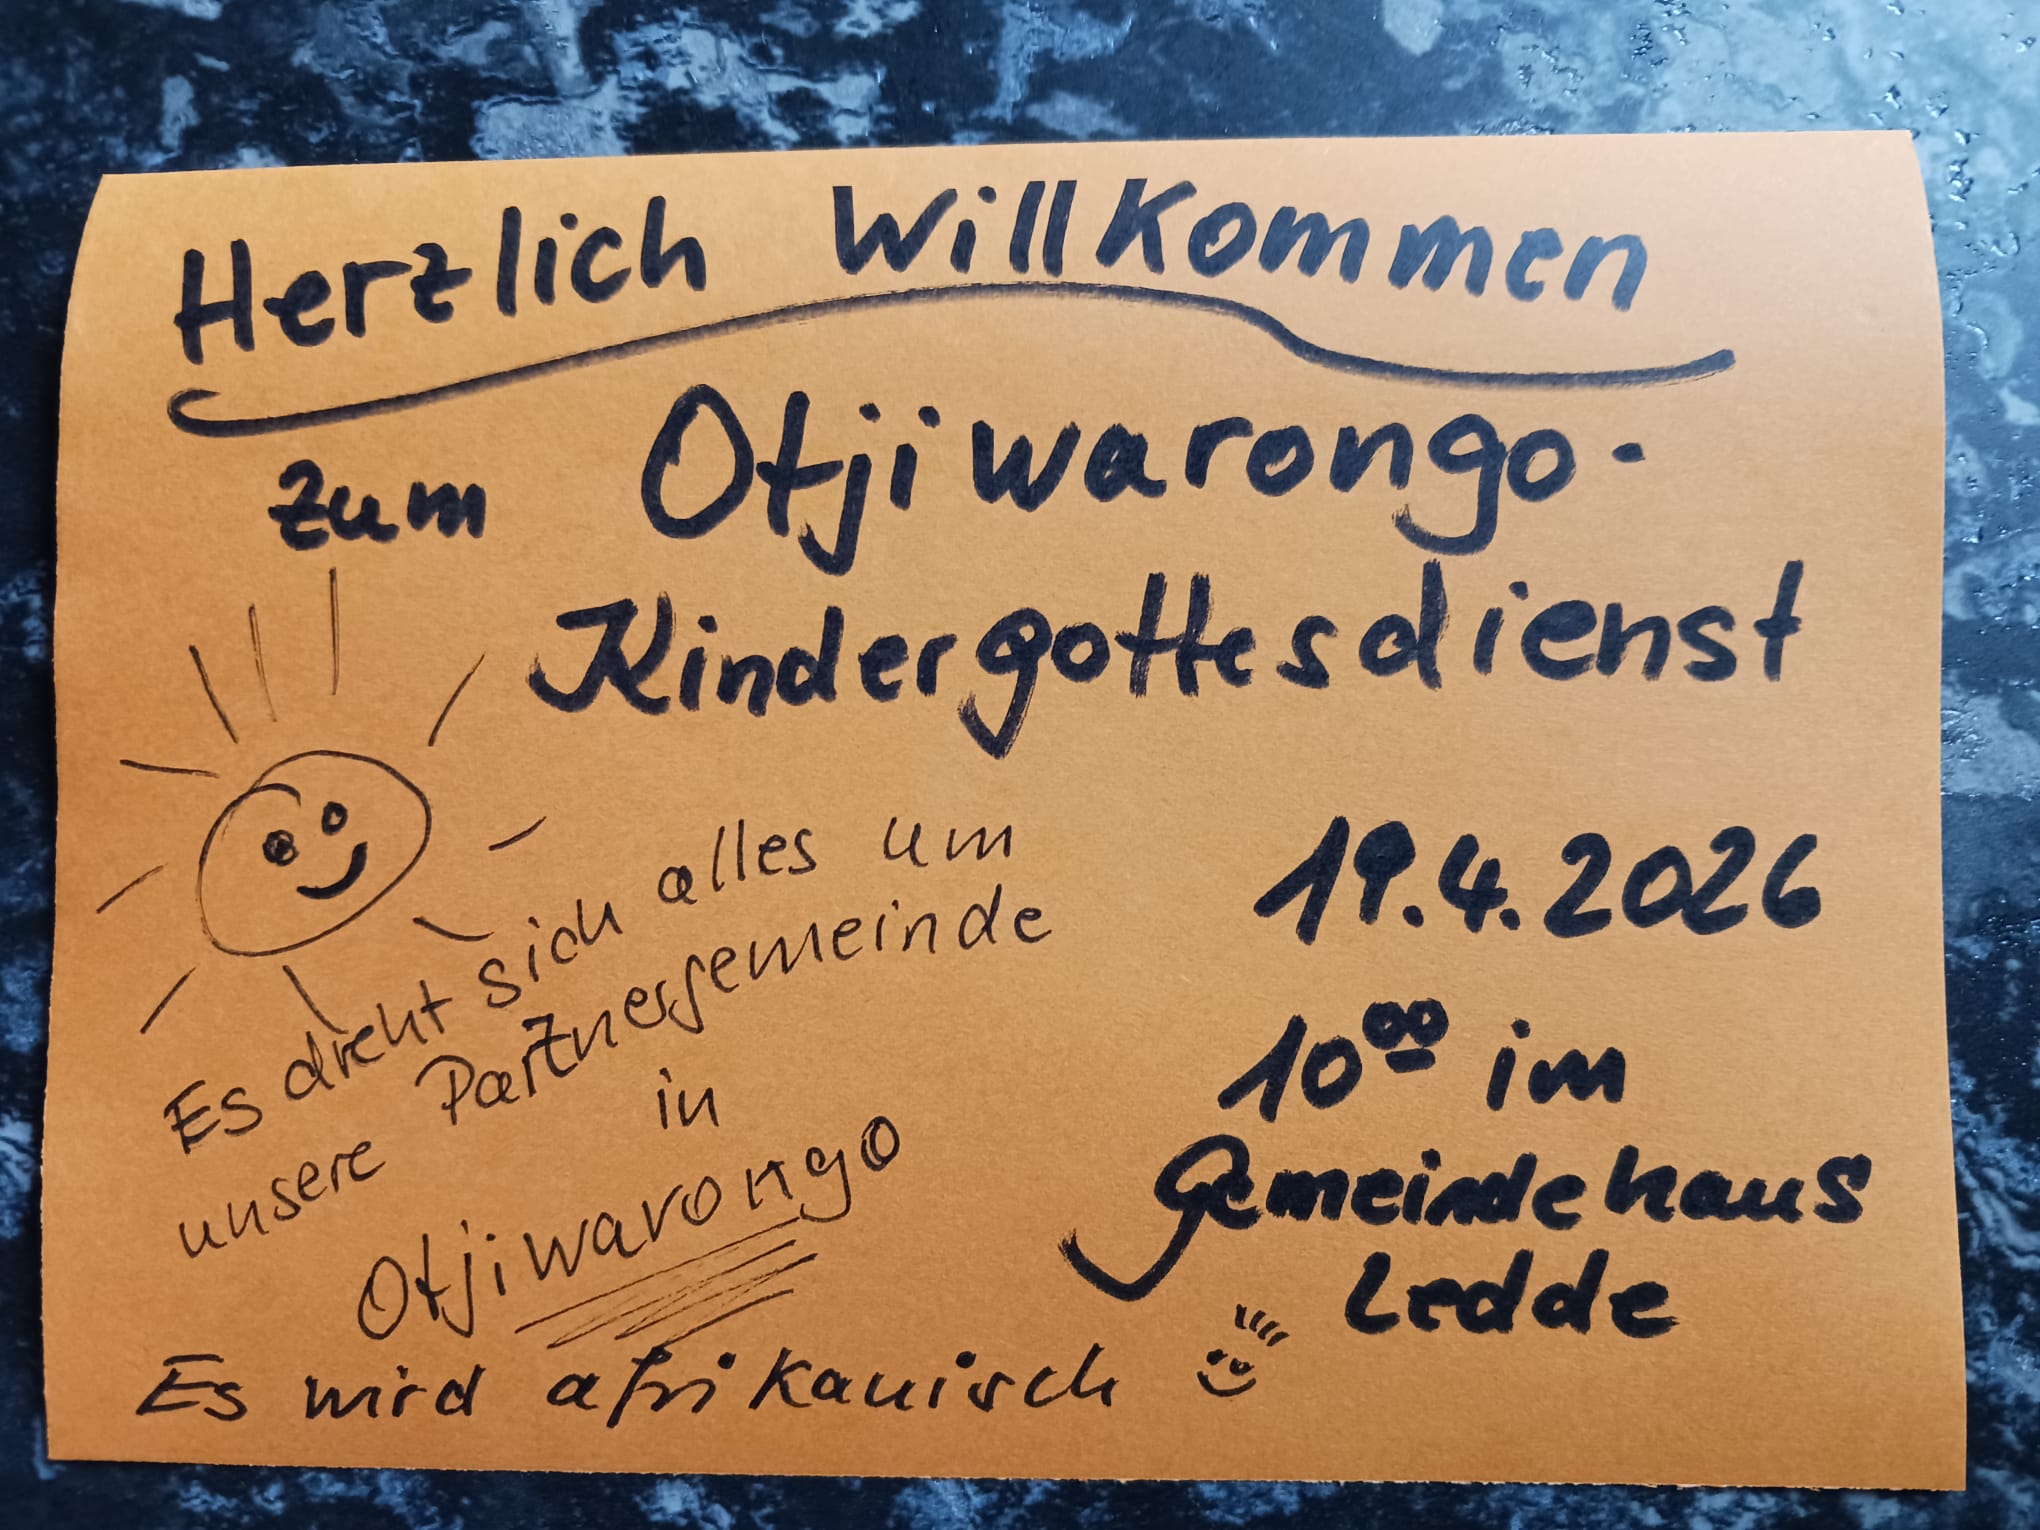 Herzlich Willkommen
zum Otjiwarongo-
Kindergottesdienst
19.4.2026
10⁰⁰ im
Gemeindehaus
Ledde
Es dreht sich alles um
unsere Partnergemeinde
in
Otjiwarongo
Es wird afrikanisch